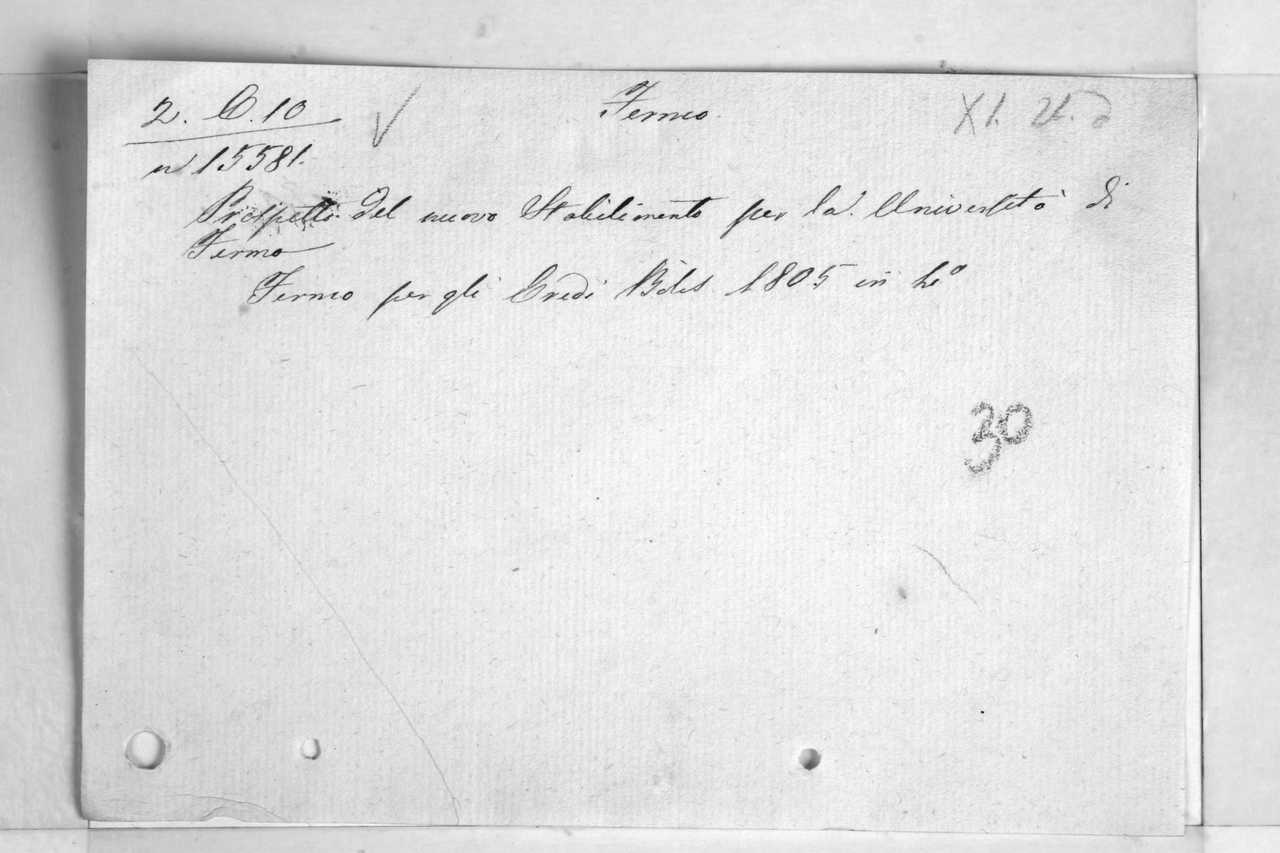 2. C. 10 Fermo XI.
n 15581.
Prospetto del nuovo Stabilimento per la Università di
Fermo
Fermo per gli Eredi 1805 in
30